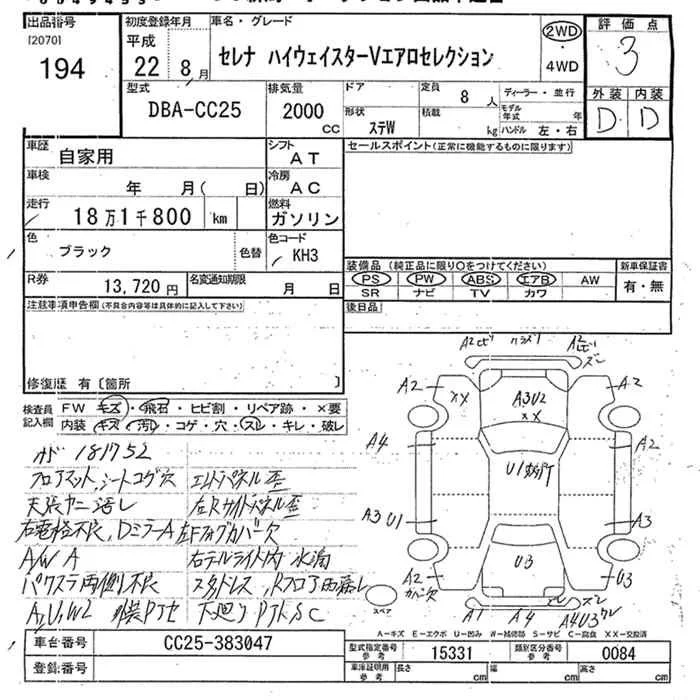 出品番号 初度登録年月 車名・グレード 評価点
[2070]
194
平成
22 8月
セレナ ハイウェイスターVエアロセレクション
2WD
・
4WD
3
型式 排気量 ドア 定員 8人 ディーラー・並行 外装 内装
DBA-CC25 2000 cc
形状 ステW 積載 kg
モデル年式 年
ハンドル 左・右
D D
車歴 自家用 シフト AT
セールスポイント(正常に機能するものに限ります)
車検 年 月( 日) 冷房 AC
走行 18万1千800 km 燃料 ガソリン
色 ブラック 色替 色コード KH3
装備品 (純正品に限り○をつけてください) 新車保証書
PS PW ABS エアB AW 有・無
SR ナビ TV カワ
R券 13,720円 名変通知期限 月 日
後日品
注意事項申告欄(不具合内容等は具体的に記入して下さい)
修復歴 有〔箇所 〕
検査員記入欄
FW キズ・飛石・ヒビ割・リペア跡・×要
内装 キズ・汚レ・コゲ・穴・スレ・キレ・破レ
181752
フロアマット、シートコゲ穴
天張ヤニ汚レ
A/W A
パワステ両側不良
右テールライト内 水滴
A2 A2
A2 XX A3U2 XX A2
A4 U1 A2
A3 U1 A3
A2 U3 U3
A1 A4 A4U3
スペア
A-キズ E-エクボ U-凹み W-補修跡 S-サビ C-腐食 XX-交換済
車台番号 CC25-383047
登録番号
型式指定番号 参考 15331 類別区分番号 参考 0084
車庫証明用 参考 長さ cm 幅 cm 高さ cm